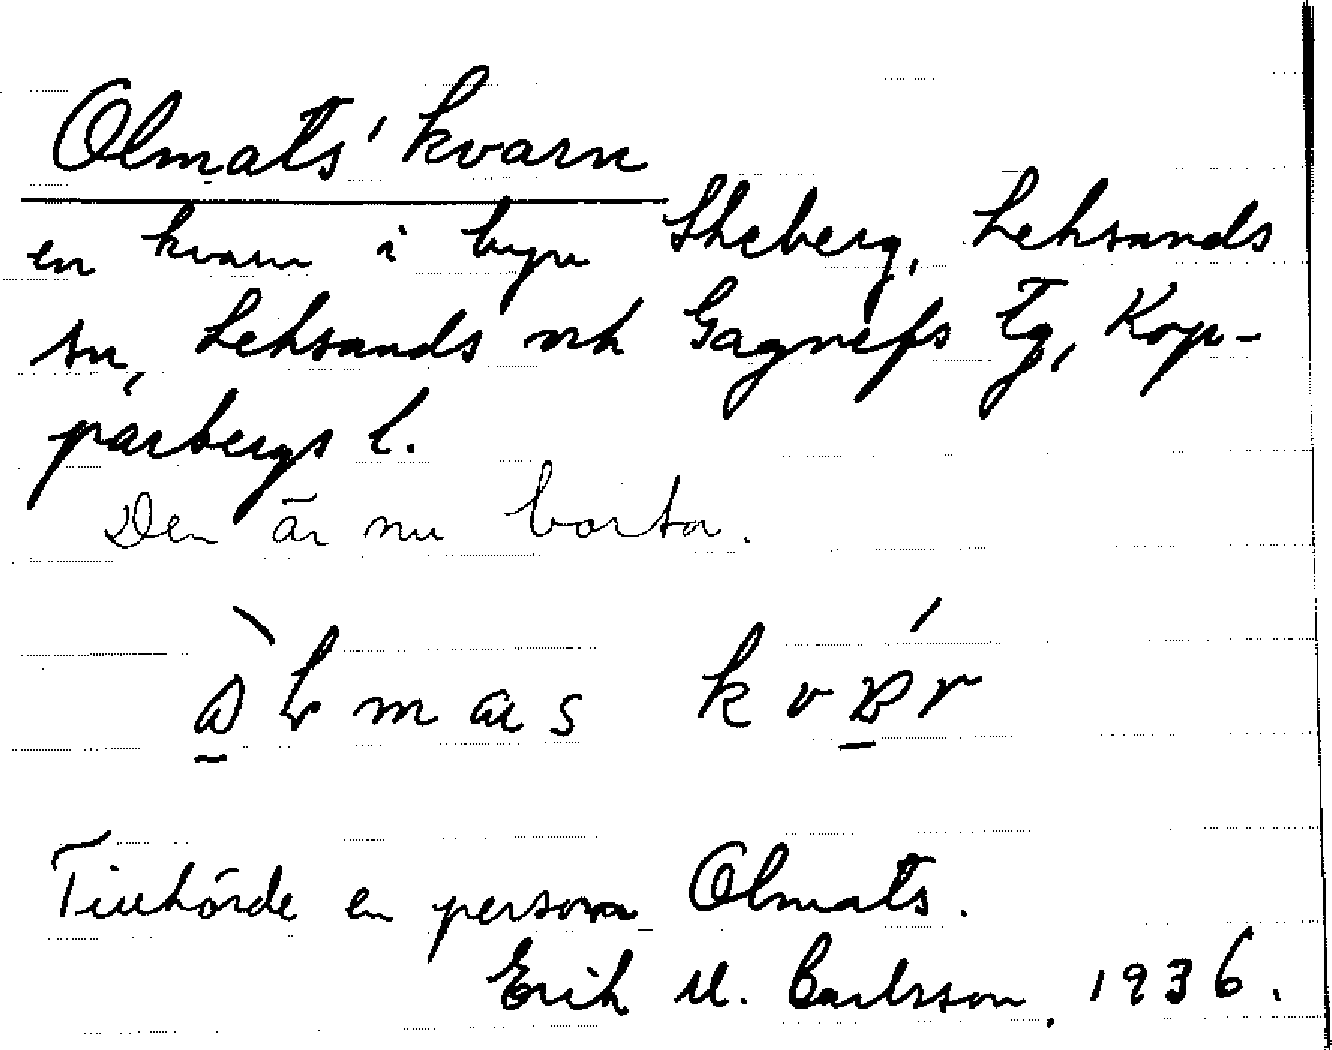 Olmats' kvarn
en kvarn i byn Skeberg, Leksands
sn, Leksands och Gagnefs tg, Kop-
parbergs l.
Den är nu borta.
mas
Tillhörde en person Olmats.
Erik M. Carlsson, 1936.